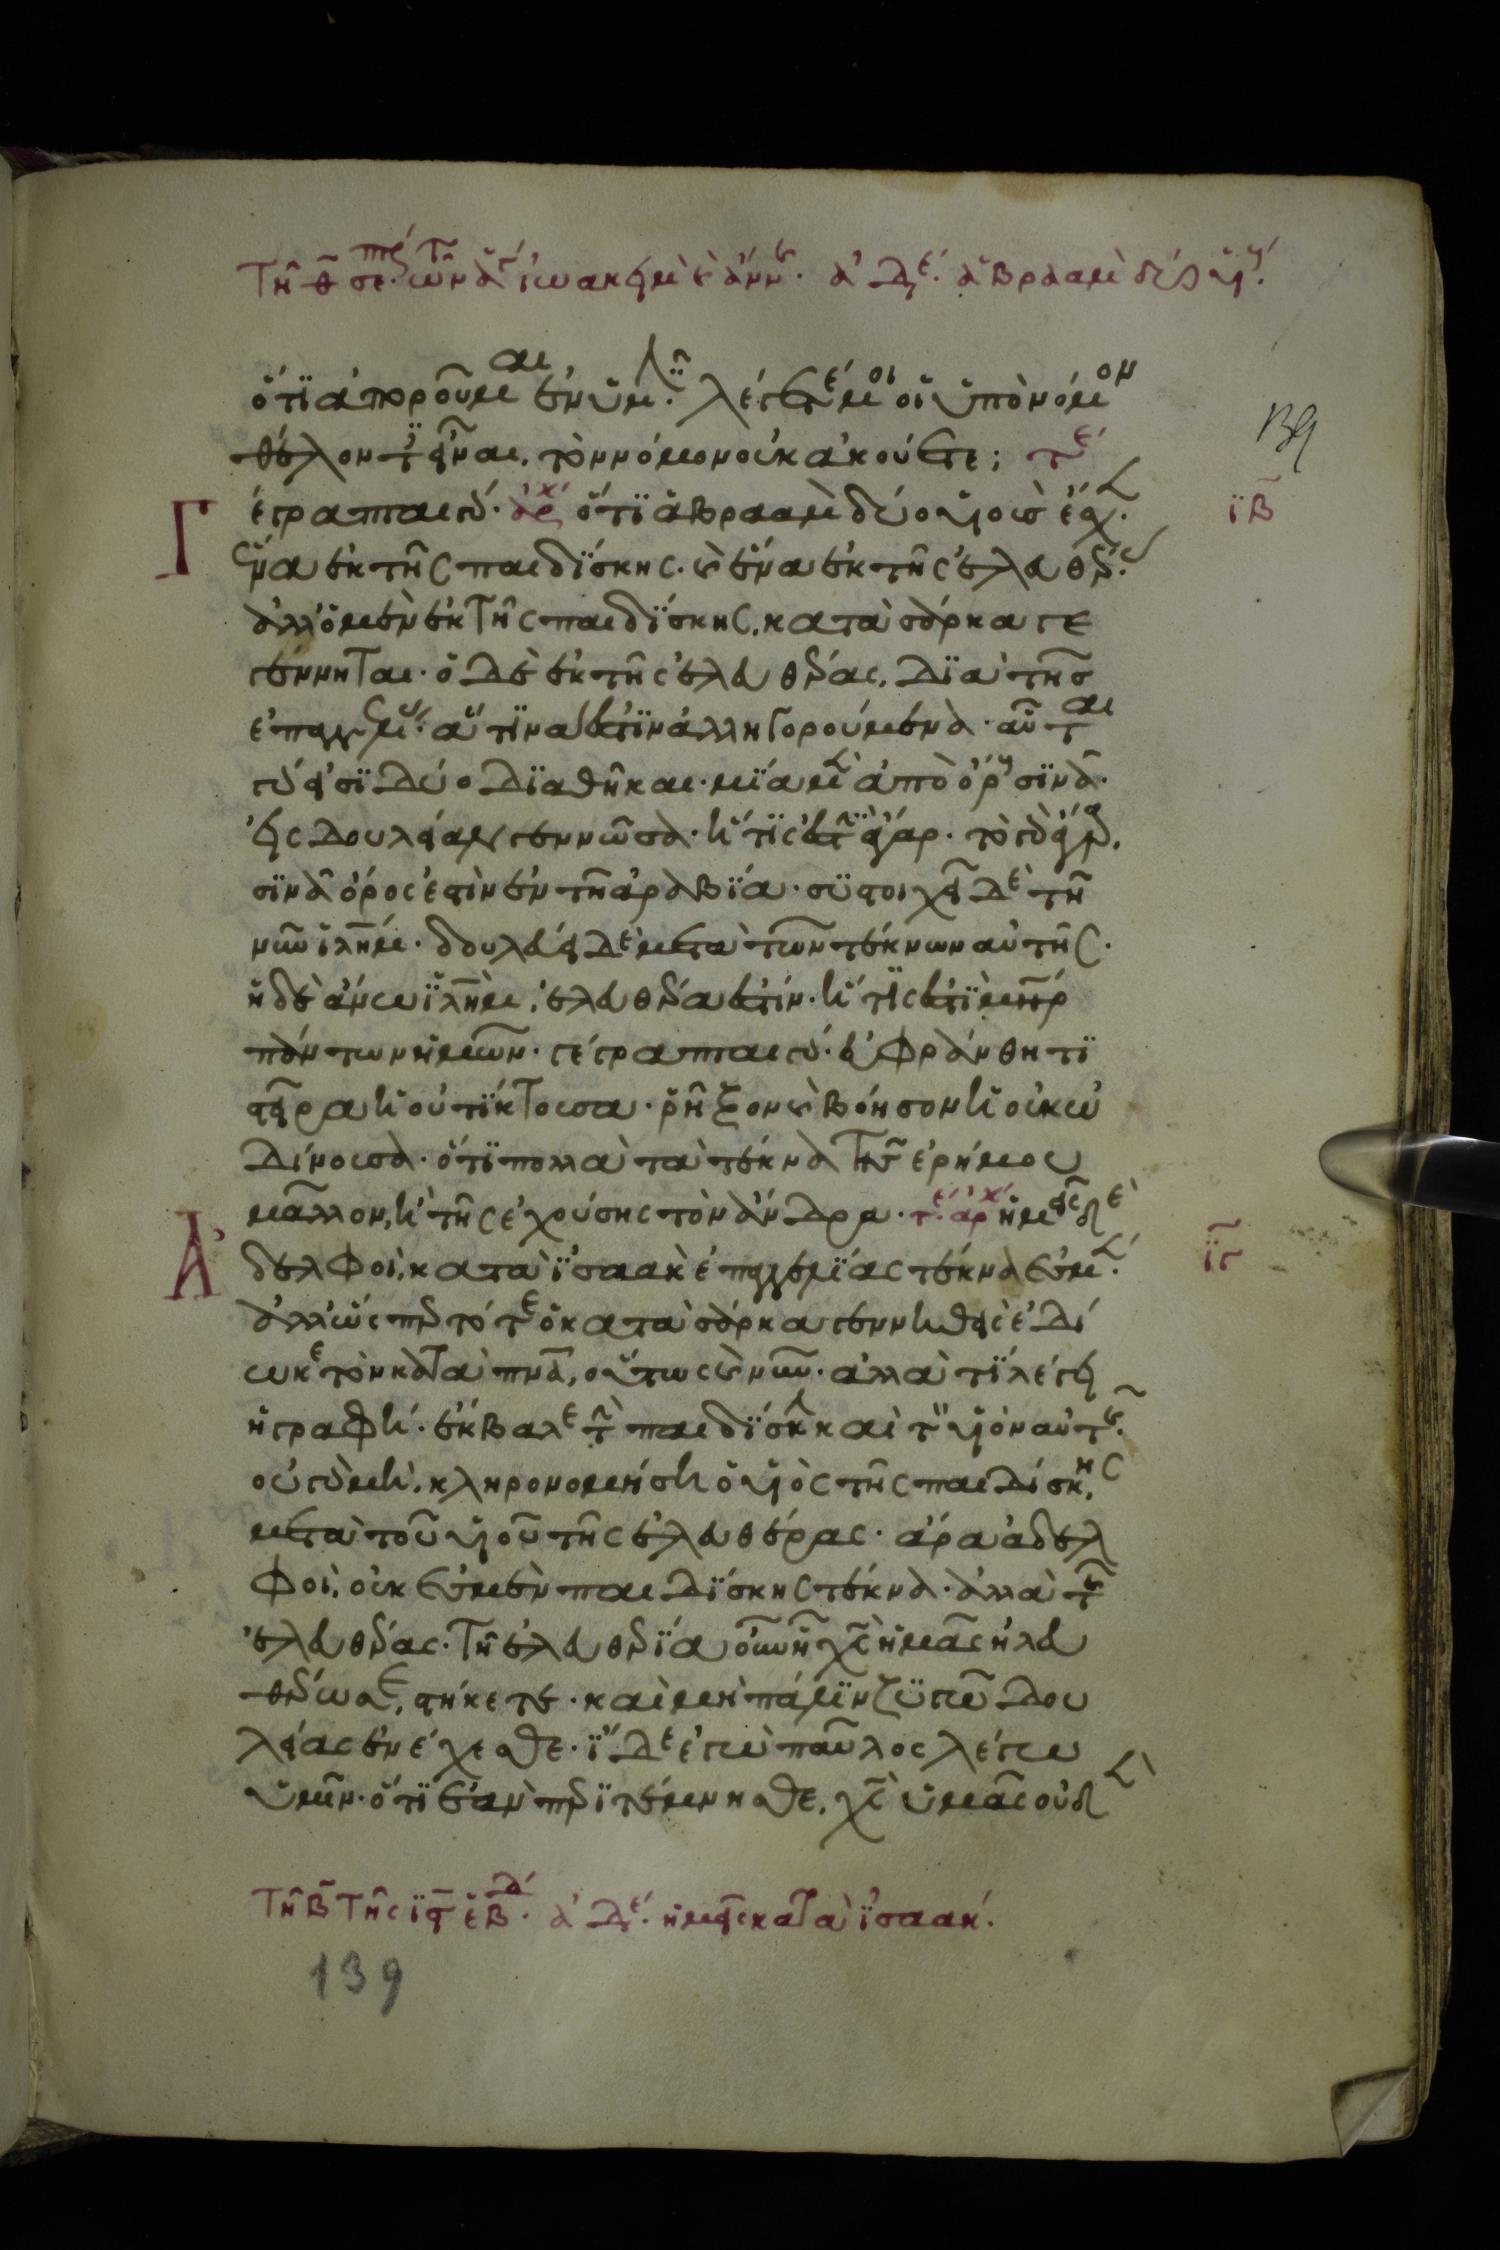 ὅτι ἀποροῦμαι ἐν ὑμῖν. λέγετέ μοι οἱ ὑπὸ νόμον
θέλοντες εἶναι. τὸν νόμον οὐκ ἀκούετε; τε
139
γέγραπται γάρ. ἀρχ ὅτι ἀβραὰμ δύο υἱοὺς ἔσχεν.
ιβ
ἕνα ἐκ τῆς παιδίσκης. καὶ ἕνα ἐκ τῆς ἐλευθέρας.
ἀλλ' ὁ μὲν ἐκ τῆς παιδίσκης, κατὰ σάρκα γε
γέννηται. ὁ δὲ ἐκ τῆς ἐλευθέρας, διὰ τῆς
ἐπαγγελίας. ἅτινά ἐστιν ἀλληγορούμενα. αὗται
γάρ εἰσι δύο διαθῆκαι. μία μὲν ἀπὸ ὄρους σινᾶ.
εἰς δουλείαν γεννῶσα. ἥτις ἐστὶν ἄγαρ. τὸ γὰρ ἄγαρ,
σινᾶ ὄρος ἐστὶν ἐν τῇ ἀραβία. συστοιχεῖ δὲ τῇ
νῦν ἱλημ. δουλεύει δὲ μετὰ τῶν τέκνων αὐτῆς.
ἡ δὲ ἄνω ἱλημ, ἐλευθέρα ἐστίν. ἥτις ἐστὶ μηρ
πάντων ἡμῶν. γέγραπται γάρ. εὐφράνθητι
στεῖρα ἡ οὐ τίκτουσα. ῥῆξον καὶ βόησον ἡ οὐκ ὠ
δίνουσα. ὅτι πολλὰ τὰ τέκνα τῆς ἐρήμου
μᾶλλον, ἢ τῆς ἐχούσης τὸν ἄνδρα. τε ἀρχ ἡμεῖς δὲ
ἀδελφοὶ, κατὰ ἰσαὰκ ἐπαγγελίας τέκνα ἐσμέν.
ιγ
ἀλλ' ὥσπερ τότε ὁ κατὰ σάρκα γεννηθεὶς ἐδί
ωκε τὸν κατὰ πνα, οὕτως καὶ νῦν. ἀλλὰ τί λέγει
ἡ γραφή. ἔκβαλε τὴν παιδίσκην καὶ τὸν υἱὸν αὐτῆς.
οὐ γὰρ μὴ, κληρονομήση ὁ υἱὸς τῆς παιδίσκης,
μετὰ τοῦ υἱοῦ τῆς ἐλευθέρας. ἄρα ἀδελ
φοὶ, οὐκ ἐσμὲν παιδίσκης τέκνα. ἀλλὰ τῆς
ἐλευθέρας. τῇ ἐλευθερία οὖν ᾗ χς ἡμᾶς ἠλευ
θέρωσε, στήκετε. καὶ μὴ πάλιν ζυγῶ δου
λείας ἐνέχεσθε. ἴδε ἐγὼ παῦλος λέγω
ὑμῖν. ὅτι ἐὰν περιτέμνησθε, χς ὑμᾶς οὐδὲν
139